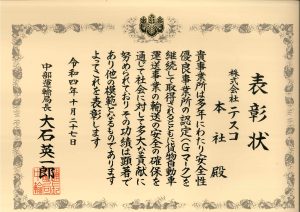 表彰状
株式会社テスコ
本社 殿
貴事業所は多年にわたり安全性
優良事業所の認定(Gマーク)を
継続して取得されるとともに貨物自動車
運送事業の輸送の安全の確保を
通じて社会に対して多大な貢献に
努められておりその功績は顕著で
あり他の模範となるものであります
よってこれを表彰します
令和四年十月二十七日
中部運輸局長 大石英一郎